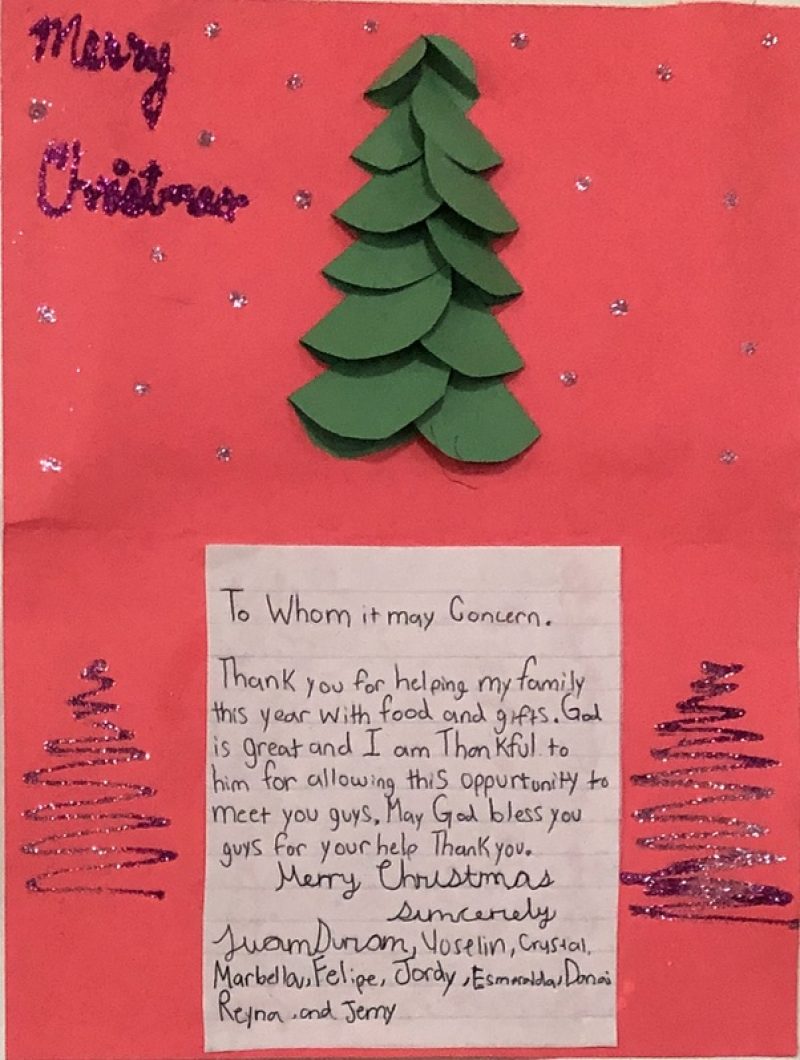 Merry
Christmas
To Whom it may Concern.
Thank you for helping my family
this year with food and gifts. God
is great and I am Thankful to
him for allowing this oppurtunity to
meet you guys. May God bless you
guys for your help Thank you.
Merry Christmas
sincerely
Juan Yoselin, Crystal,
Marbella, Felipe, Jordy, Esmeralda,
Reyna and